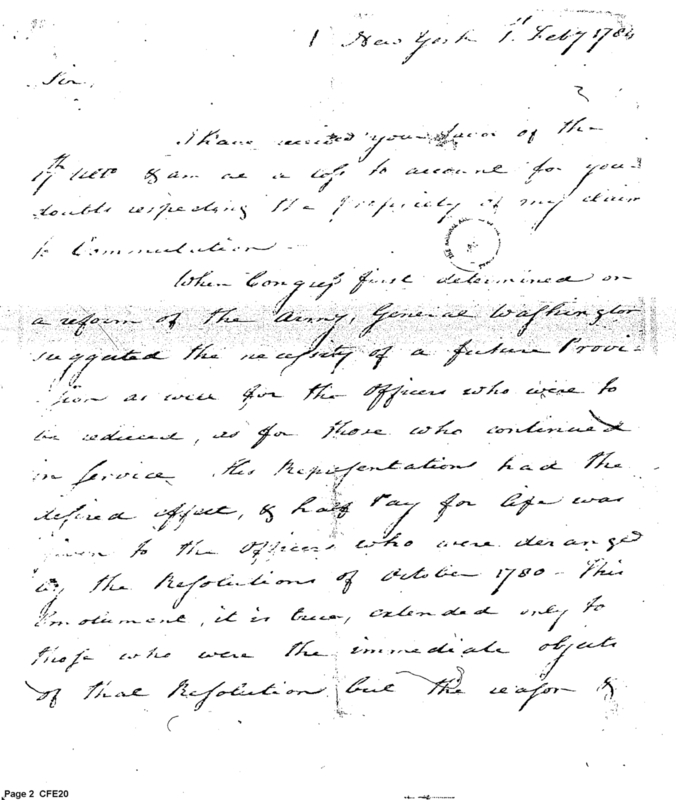 New York 1st Feby 1784
Sir,
I have received your favor of the
17th Ulto & am at a loss to account for your
doubts respecting the propriety of my claim
to Commutation
When Congress first determined on
a reform of the Army, General Washington
suggested the necessity of a future Provi-
sion as well for the Officers who were to
be reduced, as for those who continued
in Service. His Representations had the
desired effect, & half Pay for life was
given to the Officers who were deranged
by the Resolutions of October 1780 - This
Emolument, it is true, extended only to
those who were the immediate objects
of that Resolution but the reason &
Page 2 CFE20